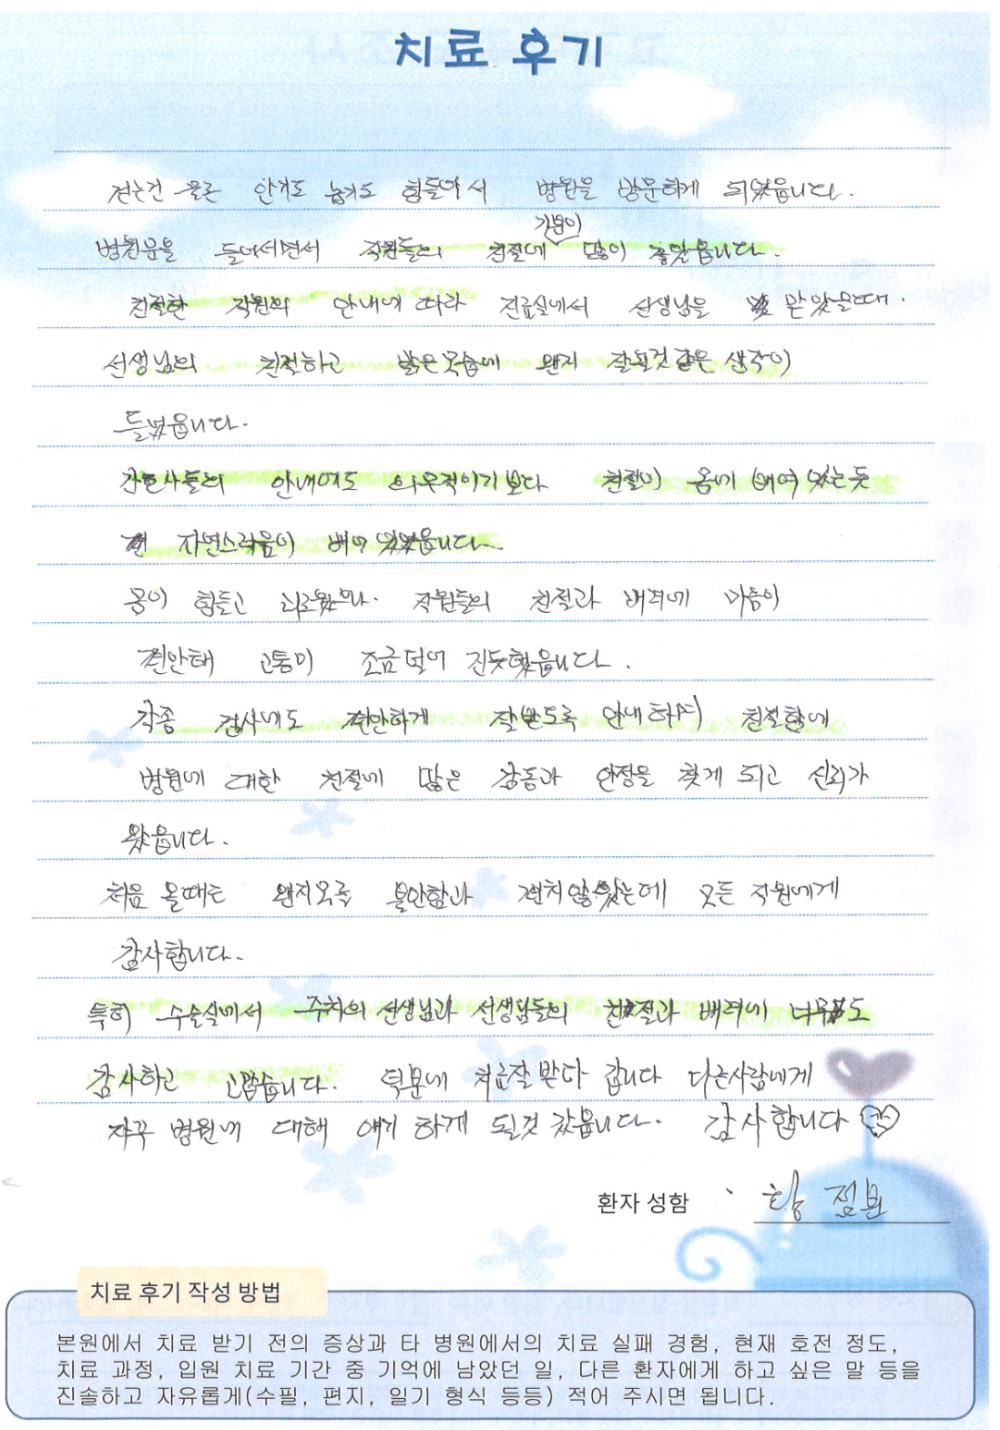 치료 후기
걷는건 물론 앉기도 눕기도 힘들어서 병원을 방문하게 되었읍니다.
기분이
병원문을 들어서면서 직원들의 친절에 많이 좋았읍니다.
친절한 직원의 안내에 따라 진료실에서 선생님을 만났을때.
선생님의 친절하고 밝은모습에 왠지 잘될것 같은 생각이
들었읍니다.
간호사들의 안내에도 의무적이기보다 친절이 몸에 배여 있는듯
자연스러움이 배어 있었읍니다.
몸이 힘들고 괴로웠으나. 직원들의 친절과 배려에 마음이
편안해 고통이 조금 덜어 진듯했읍니다.
각종 검사에도 편안하게 잘받도록 안내하여 친절함에
병원에 대한 친절에 많은 감동과 안정을 찾게 되고 신뢰가
왔읍니다.
처음 올때는 왠지모를 불안함과 편치않았는데 모든 직원에게
감사합니다.
특히 수술실에서 주치의 선생님과 선생님들의 친절과 배려에 너무도
감사하고 고맙습니다. 덕분에 치료잘받다 갑니다 다른사람에게
자꾸 병원에 대해 얘기 하게 될것 같읍니다. 감사합니다
환자 성함 황 점분
치료 후기 작성 방법
본원에서 치료 받기 전의 증상과 타 병원에서의 치료 실패 경험, 현재 호전 정도,
치료 과정, 입원 치료 기간 중 기억에 남았던 일, 다른 환자에게 하고 싶은 말 등을
진솔하고 자유롭게(수필, 편지, 일기 형식 등등) 적어 주시면 됩니다.